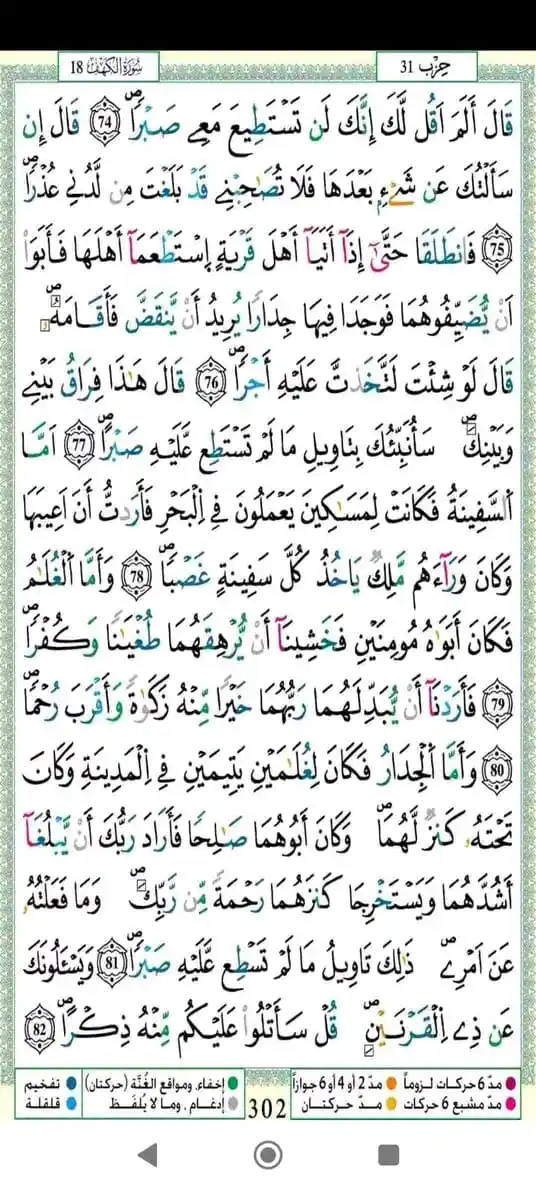 سُورَةُ الكَهْفِ 18
حِزْب 31
قَالَ أَلَمَ اَقُل لَّكَ إِنَّكَ لَن تَسْتَطِيعَ مَعِے صَبْراٗۖ 74 قَالَ إِن
سَأَلْتُكَ عَن شَےْءِۢ بَعْدَهَا فَلَا تُصَٰحِبْنِے قَدْ بَلَغْتَ مِن لَّدُنِے عُذْراٗۖ
75 فَانطَلَقَا حَتَّىٰٓ إِذَآ أَتَيَآ أَهْلَ قَرْيَةٍ اِسْتَطْعَمَآ أَهْلَهَا فَأَبَوَاْ
اَنْ يُّضَيِّفُوهُمَا فَوَجَدَا فِيهَا جِدَاراٗ يُرِيدُ أَنْ يَّنقَضَّ فَأَقَامَهُۥۖ
قَالَ لَوْ شِئْتَ لَتَّخَذتَّ عَلَيْهِ أَجْراٗۖ 76 قَالَ هَٰذَا فِرَاقُ بَيْنِے
وَبَيْنِكَۖ سَأُنَبِّئُكَ بِتَاوِيلِ مَا لَمْ تَسْتَطِع عَّلَيْهِ صَبْراًۖ 77 اَمَّا
اَلسَّفِينَةُ فَكَانَتْ لِمَسَٰكِينَ يَعْمَلُونَ فِے اِلْبَحْرِ فَأَرَدتُّ أَنَ اَعِيبَهَا
وَكَانَ وَرَآءَهُم مَّلِكٞ يَاخُذُ كُلَّ سَفِينَةٍ غَصْباٗۖ 78 وَأَمَّا اَلْغُلَٰمُ
فَكَانَ أَبَوَٰهُ مُومِنَيْنِ فَخَشِينَآ أَنْ يُّرْهِقَهُمَا طُغْيَٰناٗ وَكُفْراٗۖ
79 فَأَرَدْنَآ أَنْ يُّبَدِّلَهُمَا رَبُّهُمَا خَيْراٗ مِّنْهُ زَكَوٰةٗ وَأَقْرَبَ رُحْماٗۖ
80 وَأَمَّا اَلْجِدَارُ فَكَانَ لِغُلَٰمَيْنِ يَتِيمَيْنِ فِے اِلْمَدِينَةِ وَكَانَ
تَحْتَهُۥ كَنزٞ لَّهُمَاۖ وَكَانَ أَبُوهُمَا صَٰلِحاٗ فَأَرَادَ رَبُّكَ أَنْ يَّبْلُغَآ
أَشُدَّهُمَا وَيَسْتَخْرِجَا كَنزَهُمَا رَحْمَةٗ مِّن رَّبِّكَۖ وَمَا فَعَلْتُهُۥ
عَنَ اَمْرِےۖ ذَٰلِكَ تَاوِيلُ مَا لَمْ تَسْطِع عَّلَيْهِ صَبْراٗۖ 81 وَيَسْـَٔلُونَكَ
عَن ذِے اِلْقَرْنَيْنِۖ قُلْ سَأَتْلُواْ عَلَيْكُم مِّنْهُ ذِكْراًۖ 82
مدّ 6 حركات لزوماً
مدّ 2 أو 4 أو 6 جوازاً
إخفاء، ومواقع الغُنَّة (حركتان)
تفخيم
مدّ مشبع 6 حركات
مدّ حركتان
إدغام، وما لا يُلفَظ
قلقلة
302